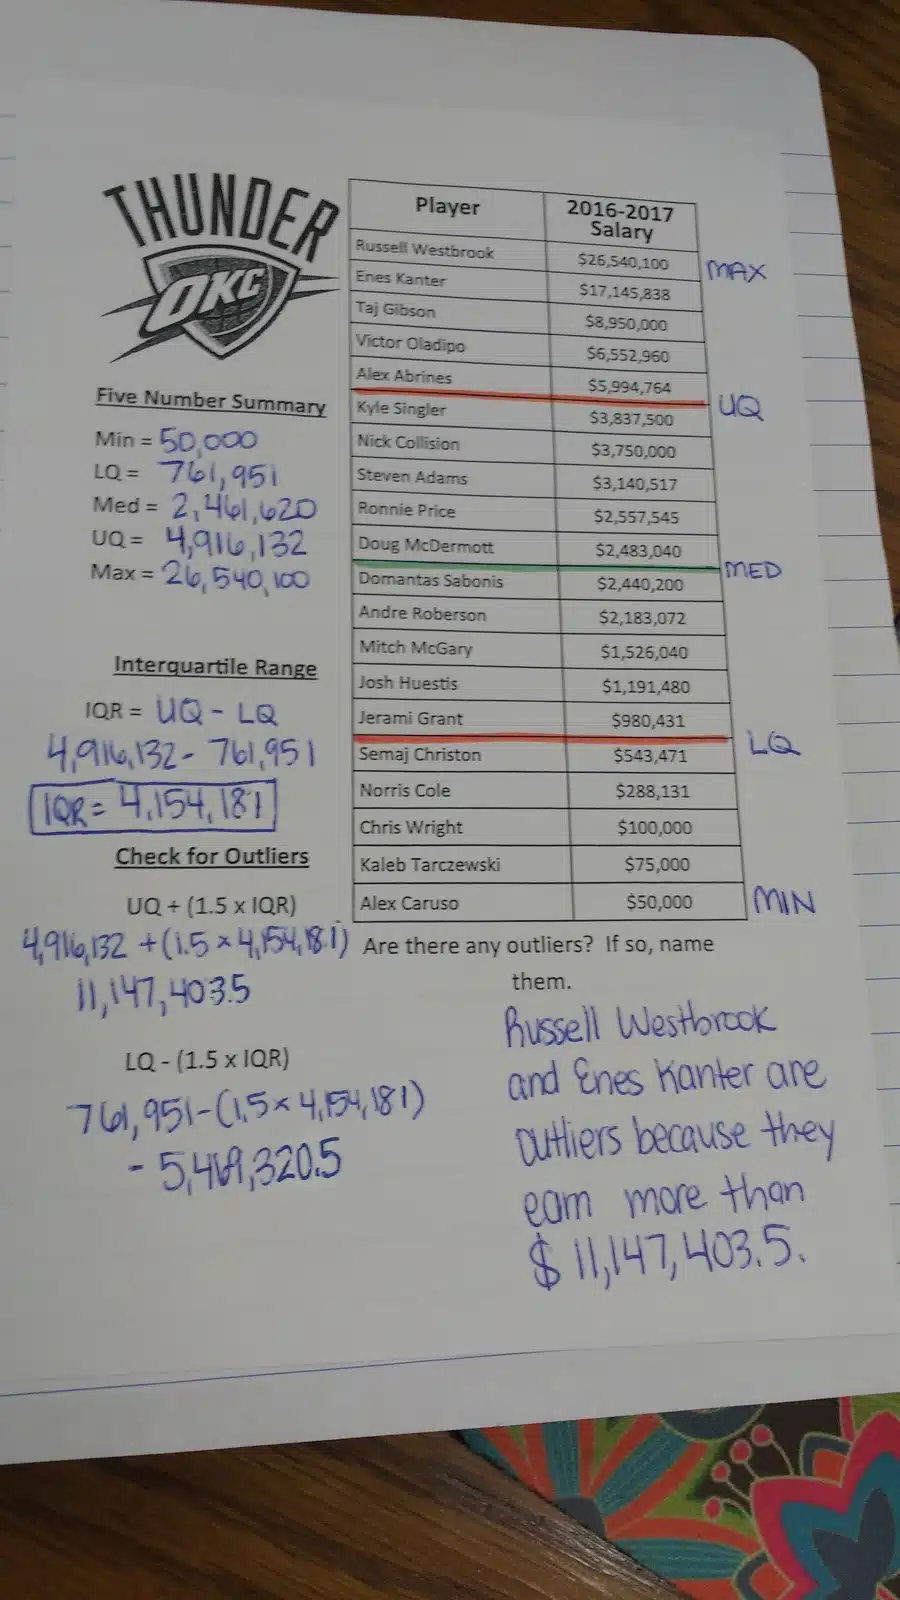 THUNDER
OKC
Player 2016-2017 Salary
Russell Westbrook $26,540,100 MAX
Enes Kanter $17,145,838
Taj Gibson $8,950,000
Victor Oladipo $6,552,960
Alex Abrines $5,994,764
UQ
Kyle Singler $3,837,500
Nick Collision $3,750,000
Steven Adams $3,140,517
Ronnie Price $2,557,545
Doug McDermott $2,483,040
MED
Domantas Sabonis $2,440,200
Andre Roberson $2,183,072
Mitch McGary $1,526,040
Josh Huestis $1,191,480
Jerami Grant $980,431
LQ
Semaj Christon $543,471
Norris Cole $288,131
Chris Wright $100,000
Kaleb Tarczewski $75,000
Alex Caruso $50,000 MIN
Five Number Summary
Min = 50,000
LQ = 761,951
Med = 2,461,620
UQ = 4,916,132
Max = 26,540,100
Interquartile Range
IQR = UQ - LQ
4,916,132 - 761,951
IQR = 4,154,181
Check for Outliers
UQ + (1.5 x IQR)
4,916,132 + (1.5 × 4,154,181)
11,147,403.5
LQ - (1.5 x IQR)
761,951 - (1.5 × 4,154,181)
- 5,469,320.5
Are there any outliers? If so, name
them.
Russell Westbrook
and Enes Kanter are
outliers because they
earn more than
$ 11,147,403.5.